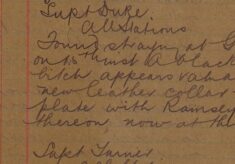 Supt Duke.
All Stations
Found straying at G
on 15th inst a black
bitch appears valua
new leather collar
plate with Ramsey
thereon now at the
Supt Turner